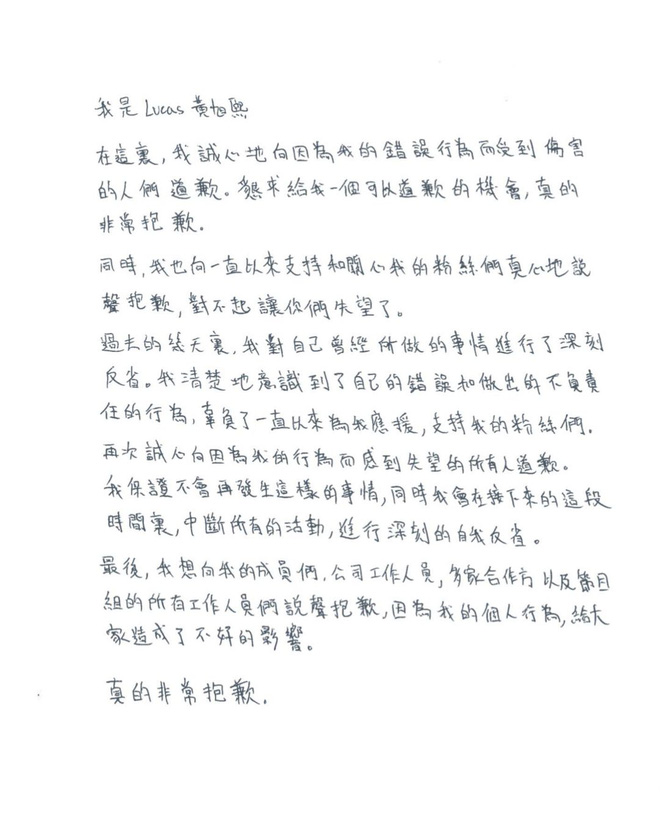 我是 Lucas 黃旭熙
在這裏，我誠心地向因為我的錯誤行為而受到傷害
的人們道歉。懇求給我一個可以道歉的機會，真的
非常抱歉．
同時，我也向一直以來支持和關心我的粉絲們真心地說
聲抱歉，對不起讓你們失望了。
過去的幾天裏，我對自己曾經所做的事情進行了深刻
反省。我清楚地意識到了自己的錯誤和做出的不負責
任的行為，辜負了一直以來為我應援，支持我的粉絲們．
再次誠心向因為我的行為而感到失望的所有人道歉。
我保證不會再發生這樣的事情，同時我會在接下來的這段
時間裏，中斷所有的活動，進行深刻的自我反省。
最後，我想向我的成員們，公司工作人員，多家合作方以及節目
組的所有工作人員們說聲抱歉，因為我的個人行為，給大
家造成了不好的影響。
真的非常抱歉．